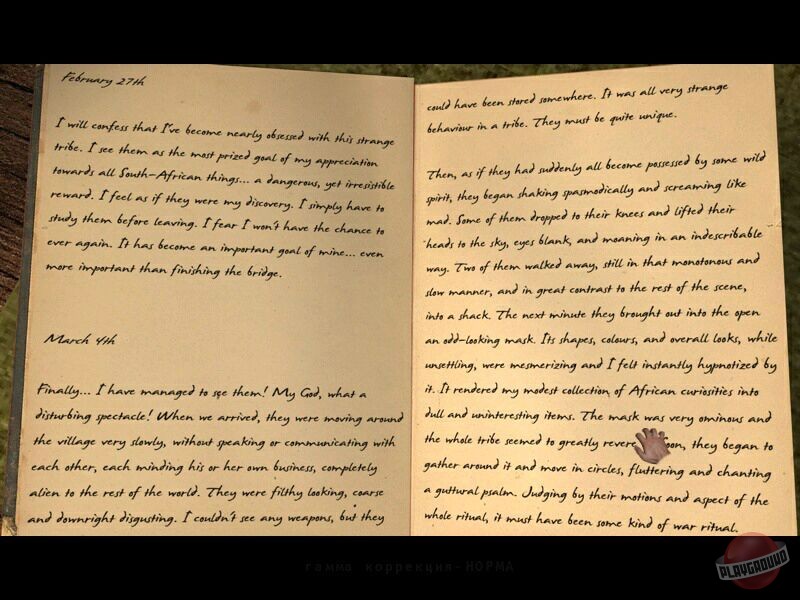 February 27th
I will confess that I've become nearly obsessed with this strange
tribe. I see them as the most prized goal of my appreciation
towards all South-African things... a dangerous, yet irresistible
reward. I feel as if they were my discovery. I simply have to
study them before leaving. I fear I won't have the chance to
ever again. It has become an important goal of mine... even
more important than finishing the bridge.
March 4th
Finally... I have managed to see them! My God, what a
disturbing spectacle! When we arrived, they were moving around
the village very slowly, without speaking or communicating with
each other, each minding his or her own business, completely
alien to the rest of the world. They were filthy looking, coarse
and downright disgusting. I couldn't see any weapons, but they
could have been stored somewhere. It was all very strange
behaviour in a tribe. They must be quite unique.
Then, as if they had suddenly all become possessed by some wild
spirit, they began shaking spasmodically and screaming like
mad. Some of them dropped to their knees and lifted their
heads to the sky, eyes blank, and moaning in an indescribable
way. Two of them walked away, still in that monotonous and
slow manner, and in great contrast to the rest of the scene,
into a shack. The next minute they brought out into the open
an odd-looking mask. Its shapes, colours, and overall looks, while
unsettling, were mesmerizing and I felt instantly hypnotized by
it. It rendered my modest collection of African curiosities into
dull and uninteresting items. The mask was very ominous and
the whole tribe seemed to greatly revere oon, they began to
gather around it and move in circles, fluttering and chanting
a guttural psalm. Judging by their motions and aspect of the
whole ritual, it must have been some kind of war ritual.
гамма коррекция-НОРМА
PLAYGROUND